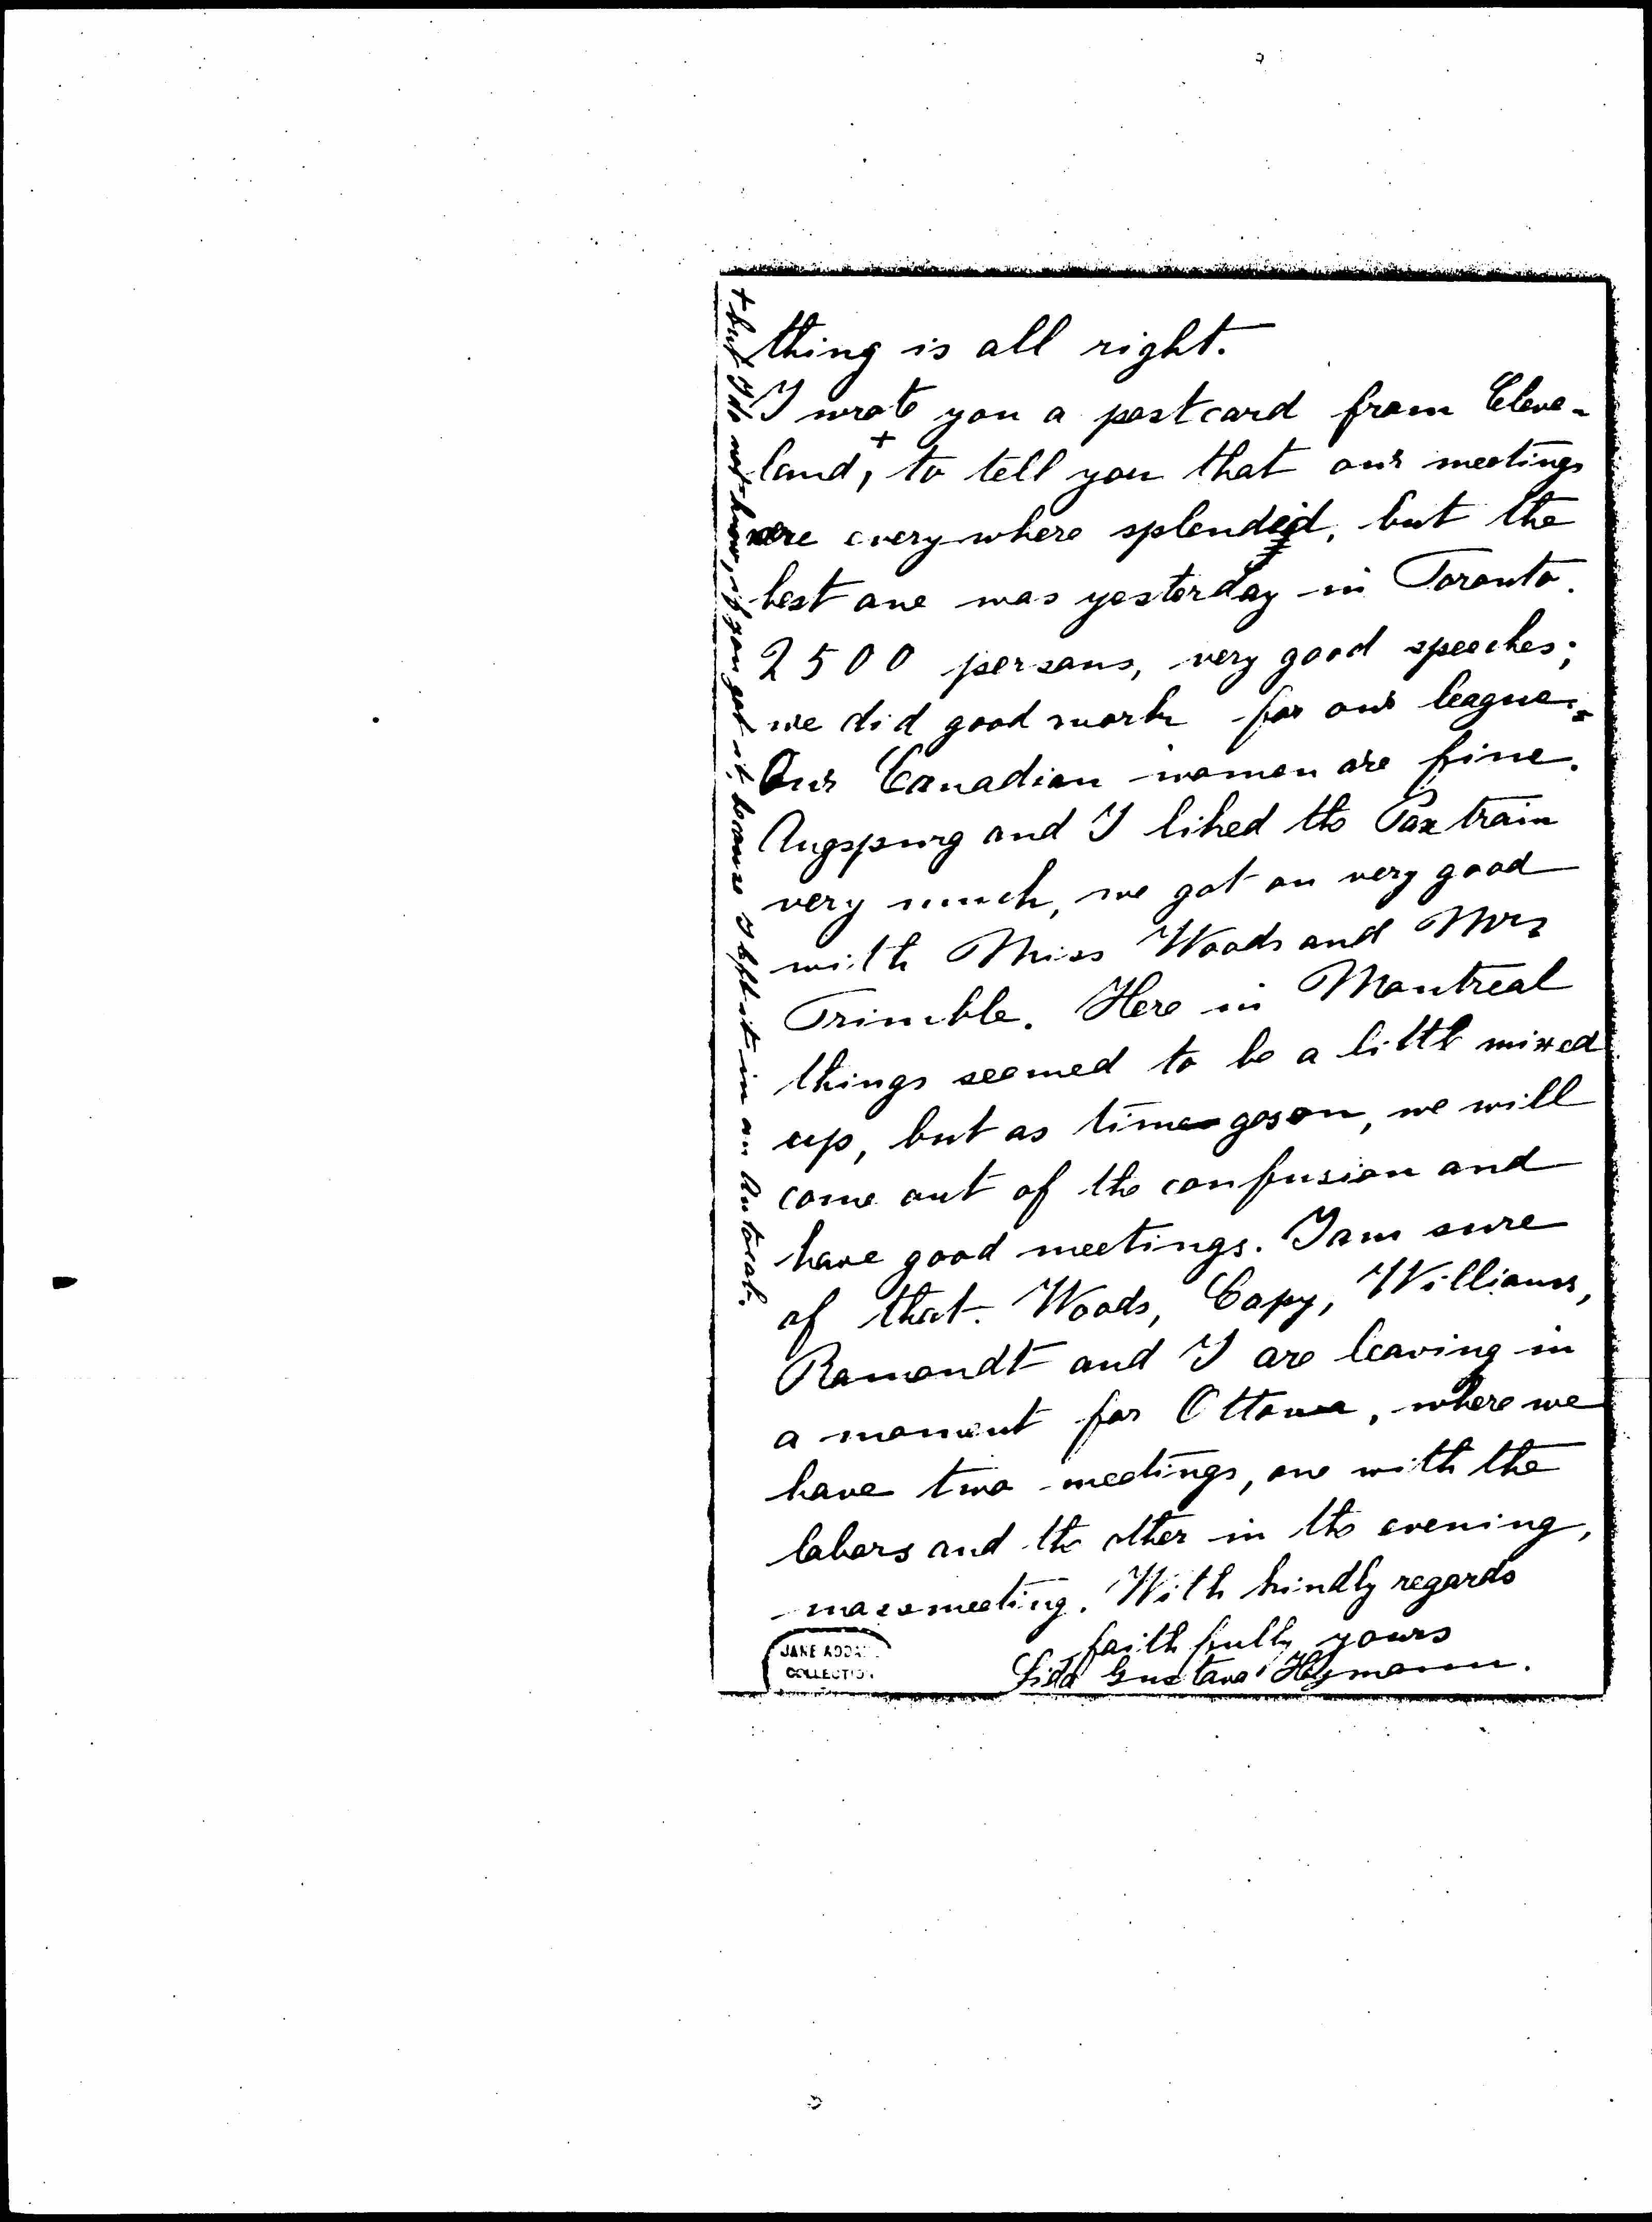 thing is all right.
I wrote you a postcard from Cleve-
land,+ to tell you that our meetings
were everywhere splendid, but the
best one was yesterday in Toronto.
2500 persons, very good speeches;
we did good work for our league.
Our Canadian women are fine.
Augspurg and I liked the Pax train
very much, we got on very good
with Miss Woods and Mrs
Trimble. Here in Montreal
things seemed to be a little mixed
up, but as time goes on, we will
come out of the confusion and
have good meetings. I am sure
of that. Woods, Capy, Williams,
Ramondt and I are leaving in
a moment for Ottawa, where we
have two meetings, one with the
labors and the other in the evening,
massmeeting. With kindly regards
faithfully yours
Lida Gustava Heymann.
+ but I do not know, if you got it, because I left it in an Autocab.
JANE ADDA
COLLECTION